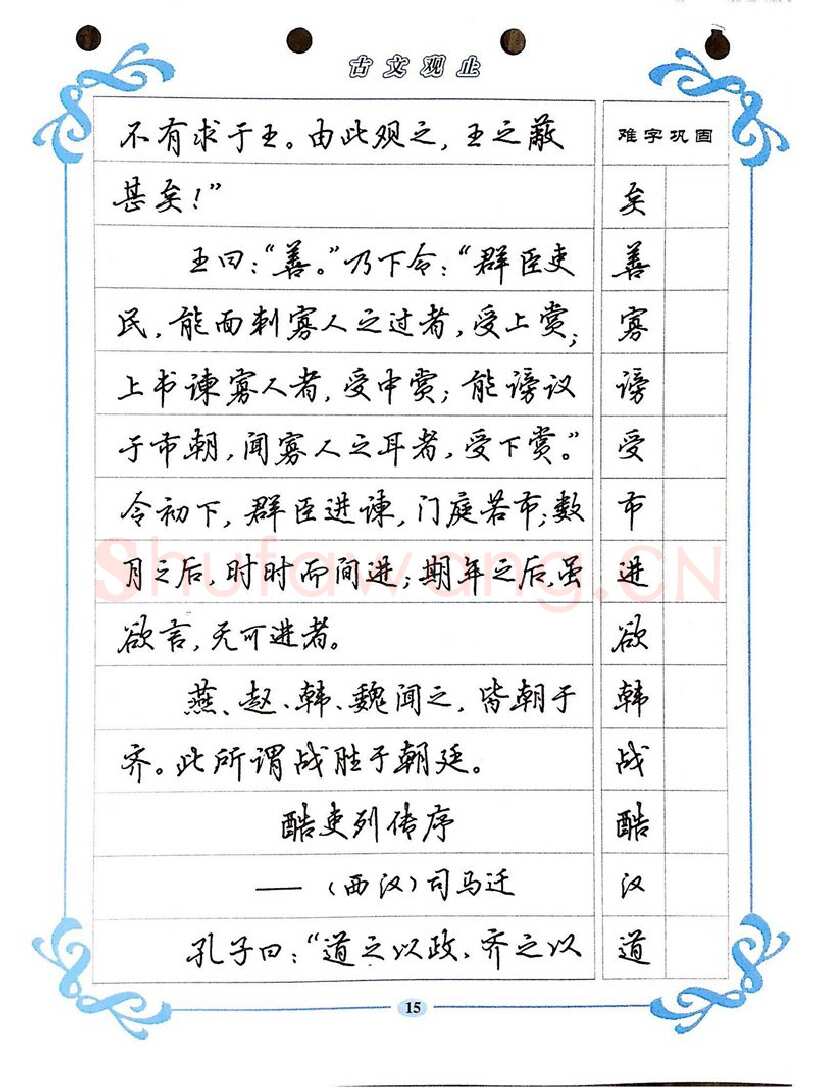 古文观止
不有求于王。由此观之，王之蔽
甚矣！”
王曰：“善。”乃下令：“群臣吏
民，能面刺寡人之过者，受上赏；
上书谏寡人者，受中赏；能谤议
于市朝，闻寡人之耳者，受下赏。”
令初下，群臣进谏，门庭若市；数
月之后，时时而间进；期年之后，虽
欲言，无可进者。
燕、赵、韩、魏闻之，皆朝于
齐。此所谓战胜于朝廷。
酷吏列传序
——（西汉）司马迁
孔子曰：“道之以政，齐之以
难字巩固
矣
善
寡
谤
受
市
进
欲
韩
战
酷
汉
道
Shufawang.CN
15